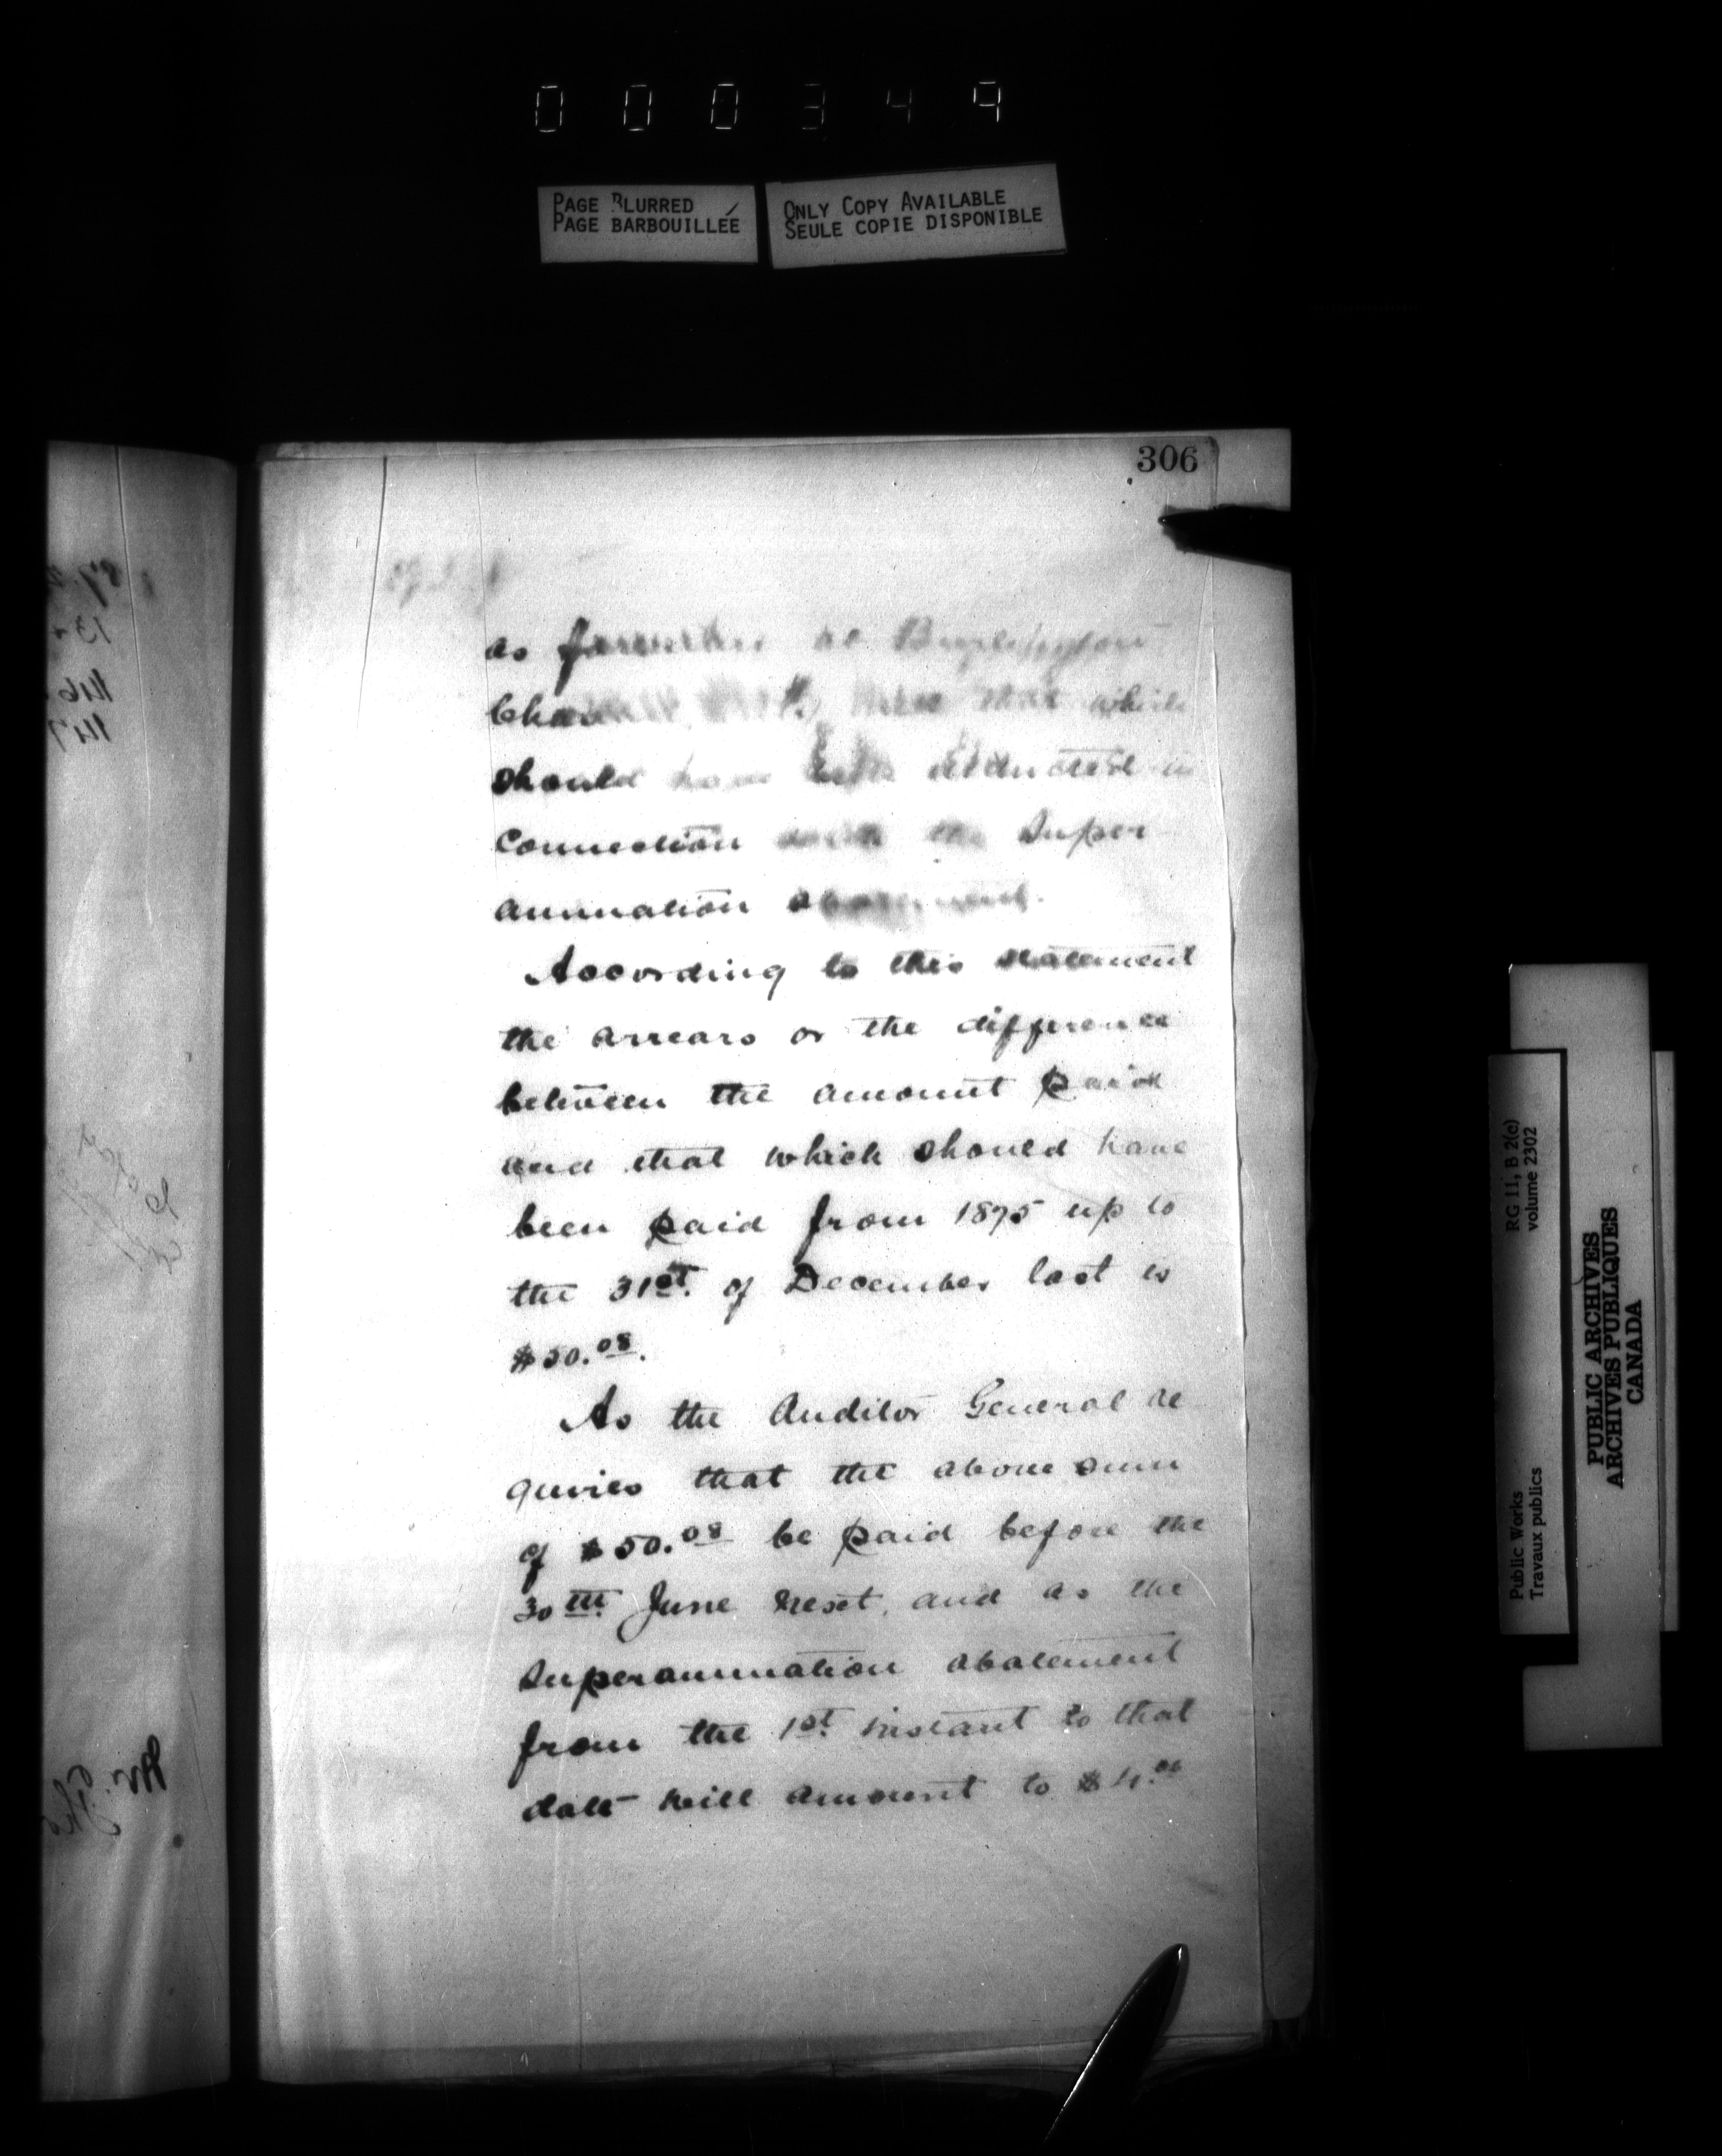 000349
PAGE BLURRED
PAGE BARBOUILLÉE
ONLY COPY AVAILABLE
SEULE COPIE DISPONIBLE
306
as at Burlington
which
should have been deducted in
Connection with the Super
annuation abatement.
According to this statement
the arrears or the difference
between the amount paid
and that which should have
been paid from 1895 up to
the 31st. of December last is
$50.08.
As the Auditor General re
quires that the above sum
of $50.08 be paid before the
30th June next, and as the
Superannuation abatement
from the 1st. instant to that
date will amount to
RG 11, B 2(c)
volume 2302
Public Works
Travaux publics
PUBLIC ARCHIVES
ARCHIVES PUBLIQUES
CANADA